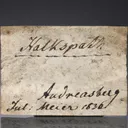 Kalkspath.
Andreasberg
Jul. Meier 1836